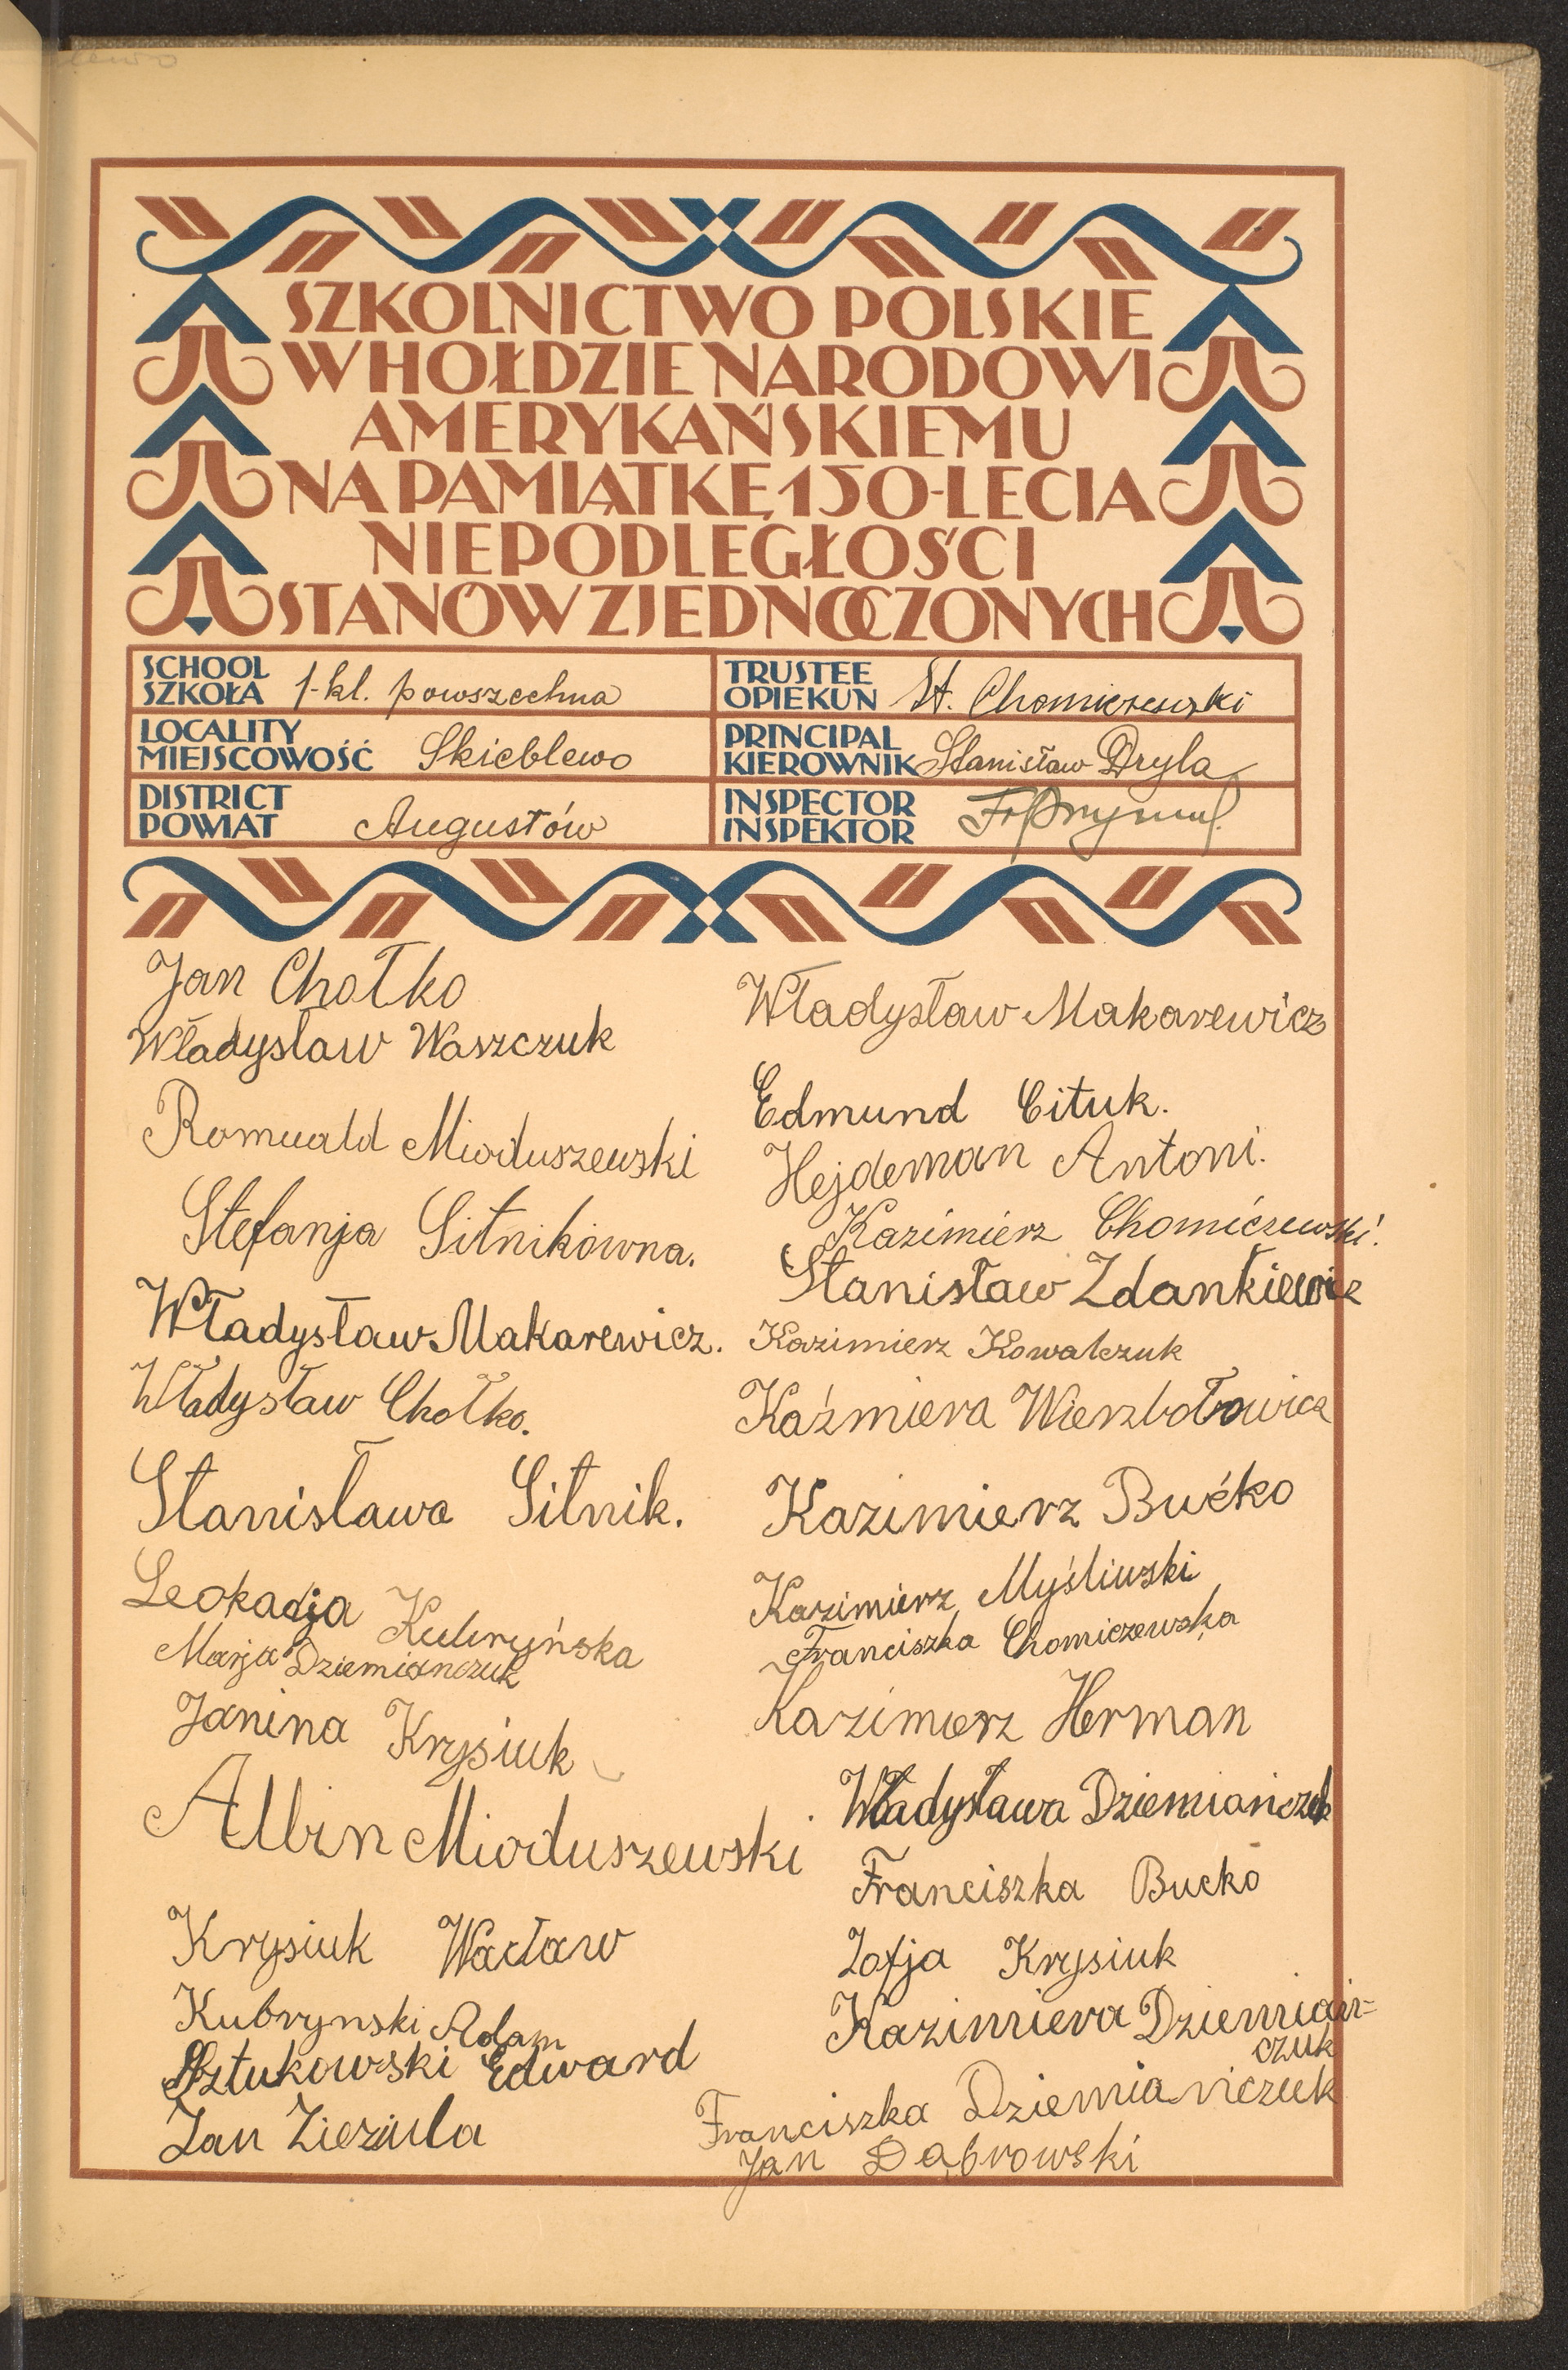 SZKOLNICTWO POLSKIE
W HOŁDZIE NARODOWI
AMERYKAŃSKIEMU
NA PAMIĄTKĘ 150-LECIA
NIEPODLEGŁOŚCI
STANÓW ZJEDNOCZONYCH
SCHOOL
SZKOŁA 1-kl. powszechna
TRUSTEE
OPIEKUN St. Chomiczewski
LOCALITY
MIEJSCOWOŚĆ Skieblewo
PRINCIPAL
KIEROWNIK Stanisław Dryla
DISTRICT
POWIAT Augustów
INSPECTOR
INSPEKTOR
Jan Chołko
Władysław Waszczuk
Romuald Mioduszewski
Stefanja Sitnikówna.
Władysław Makarewicz.
Władysław Chołko.
Stanisława Sitnik.
Leokadja Kubryńska
Marja Dziemianczuk
Janina Krysiuk
Albin Mioduszewski
Krysiuk Wacław
Kubrynski Adam
Sztukowski Edward
Jan Zieziula
Władysław Makarewicz
Edmund Cituk.
Hejdeman Antoni.
Kazimierz Chomiczewski.
Stanisław Zdankiewicz
Kazimierz Kowalczuk
Kaźmiera Wierzbołowicz
Kazimierz Bućko
Kazimierz Myśliwski
Franciszka Chomiczewska
Kazimierz Herman
Władysława Dziemiańczuk
Franciszka Bucko
Zofja Krysiuk
Kazimiera Dziemiań-
czuk
Franciszka Dziemianiczuk
Jan Dąbrowski